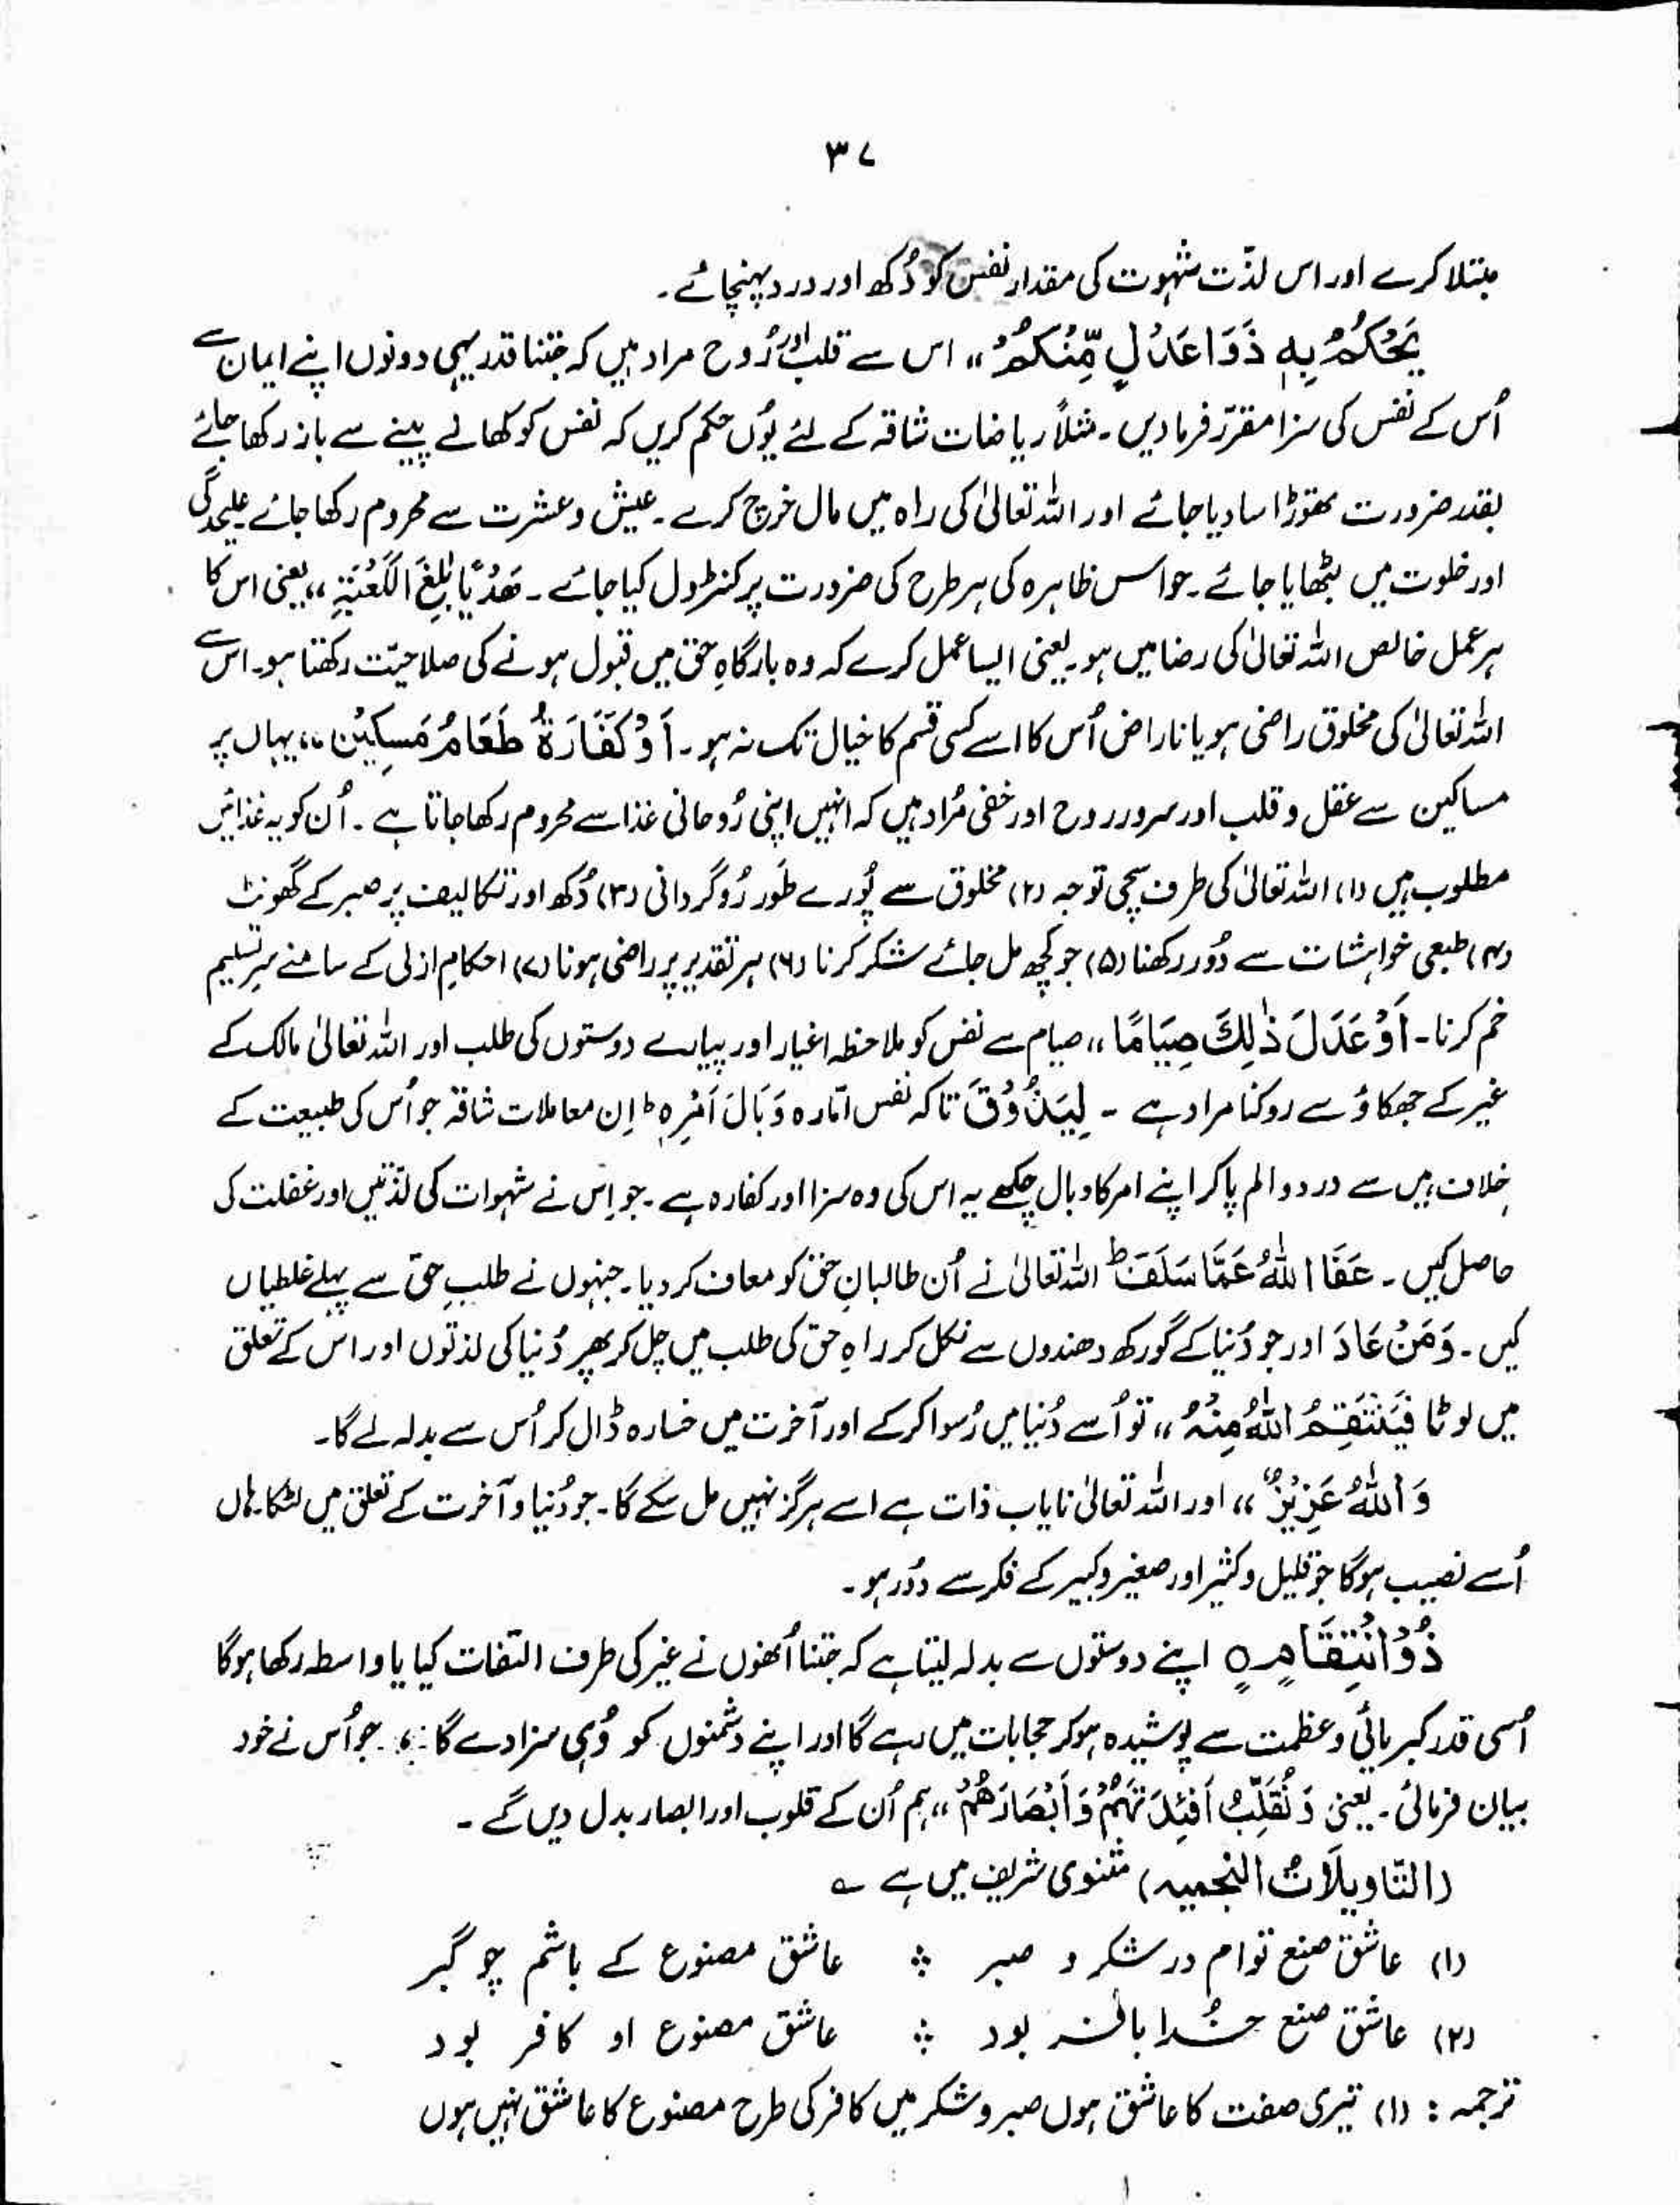 ۳۷
مبتلا کرے اور اس لذّت شہوت کی مقدار نفس کو دُکھ اور درد پہنچائے۔
یَحْکُمُ بِہٖ ذَوَا عَدْلٍ مِّنْکُمْ ،، اس سے قلب اور رُوح مراد ہیں کہ جتنا قدر یہی دونوں اپنے ایمان سے
اُس کے نفس کی سزا مقرّر فرمادیں۔ مثلاً ریاضات شاقہ کے لئے یُوں حکم کریں کہ نفس کو کھانے پینے سے باز رکھا جائے
بقدر ضرورت تھوڑا سا دیا جائے اور اللہ تعالیٰ کی راہ میں مال خرچ کرے۔ عیش و عشرت سے محروم رکھا جائے علیحدگی
اور خلوت میں بٹھایا جائے۔ حواس ظاہرہ کی ہر طرح کی ضرورت پر کنٹرول کیا جائے۔ ھَدْیًۢا بٰلِغَ الْکَعْبَۃِ ،، یعنی اس کا
ہر عمل خالص اللہ تعالیٰ کی رضا میں ہو۔ یعنی ایسا عمل کرے کہ وہ بارگاہِ حق میں قبول ہونے کی صلاحیّت رکھتا ہو۔ اس سے
اللہ تعالیٰ کی مخلوق راضی ہو یا ناراض اُس کا اسے کسی قسم کا خیال تک نہ ہو۔ اَوْ کَفَّارَۃٌ طَعَامُ مَسٰکِیْنَ ،، یہاں پر
مساکین سے عقل و قلب اور سرور روح اور خفی مُراد ہیں کہ انہیں اپنی رُوحانی غذا سے محروم رکھا جاتا ہے۔ اُن کو یہ غذائیں
مطلوب ہیں (۱) اللہ تعالیٰ کی طرف سچّی توجہ (۲) مخلوق سے پُورے طَور رُوگردانی (۳) دُکھ اور تکالیف پر صبر کے گھونٹ
(۴) طبعی خواہشات سے دُور رکھنا (۵) جو کچھ مل جائے شکر کرنا (۶) ہر تقدیر پر راضی ہونا (۷) احکامِ ازلی کے سامنے سرِتسلیم
خم کرنا۔ اَوْ عَدْلَ ذٰلِکَ صِیَامًا ،، صیام سے نفس کو ملاحظہ اغیار اور پیارے دوستوں کی طلب اور اللہ تعالیٰ مالک کے
غیر کے جھکاؤ سے روکنا مراد ہے ۔ لِیَذُوْقَ تاکہ نفس امّارہ وَبَالَ اَمْرِہٖ ؕ اِن معاملات شاقّہ جو اُس کی طبیعت کے
خِلاف ہیں سے درد و الم پاکر اپنے امر کا وبال چکھے یہ اس کی وہ سزا اور کفارہ ہے۔ جو اِس نے شہوات کی لذّتیں اور غفلت کی
حاصل کیں ۔ عَفَا اللہُ عَمَّا سَلَفَ ؕ اللہ تعالیٰ نے اُن طالبانِ حق کو معاف کردیا۔ جنہوں نے طلبِ حق سے پہلے غلطیاں
کیں ۔ وَمَنْ عَادَ اور جو دُنیا کے گورکھ دھندوں سے نکل کر راہِ حق کی طلب میں چل کر پھر دُنیا کی لذتوں اور اس کے تعلق
میں لوٹا فَیَنْتَقِمُ اللہُ مِنْہُ ،، تو اُسے دُنیا میں رُسوا کرکے اور آخرت میں خسارہ ڈال کر اُس سے بدلہ لے گا۔
وَاللہُ عَزِیْزٌ ،، اور اللہ تعالیٰ نایاب ذات ہے اسے ہرگز نہیں مل سکے گا۔ جو دُنیا و آخرت کے تعلق میں لٹکا۔ ہاں
اُسے نصیب ہوگا جو قلیل و کثیر اور صغیر و کبیر کے فکر سے دُور ہو۔
ذُوْ انْتِقَامٍ ہ اپنے دوستوں سے بدلہ لیتا ہے کہ جتنا اُنھوں نے غیر کی طرف التفات کیا یا واسطہ رکھا ہوگا
اُسی قدر کبریائی و عظمت سے پوشیدہ ہوکر حجابات میں رہے گا اور اپنے دشمنوں کو وُہی سزا دے گا۔ جو اُس نے خود
بیان فرمائی۔ یعنی وَنُقَلِّبُ اَفْئِدَتَھُمْ وَاَبْصَارَھُمْ ،، ہم اُن کے قلوب اور ابصار بدل دیں گے ۔
(التّاویلَاتُ النجمیہ) مثنوی شریف میں ہے ؎
(۱) عاشق صنع توام در شکر و صبر ؞ عاشق مصنوع کے باشم چو گبر
(۲) عاشق صنع خُدا بافر بود ؞ عاشق مصنوع او کافر بود
ترجمہ : (۱) تیری صفت کا عاشق ہوں صبر و شکر میں کافر کی طرح مصنوع کا عاشق نہیں ہوں